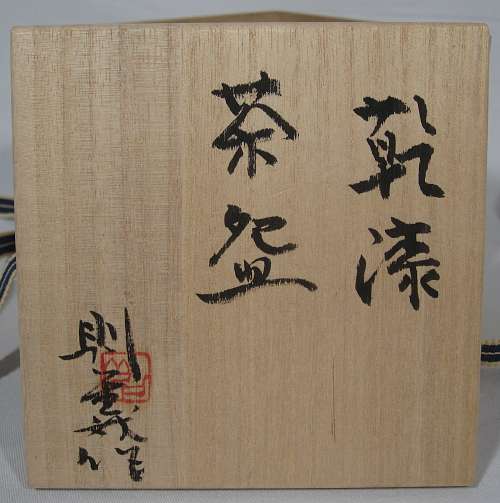 乾漆
茶盌
則義作